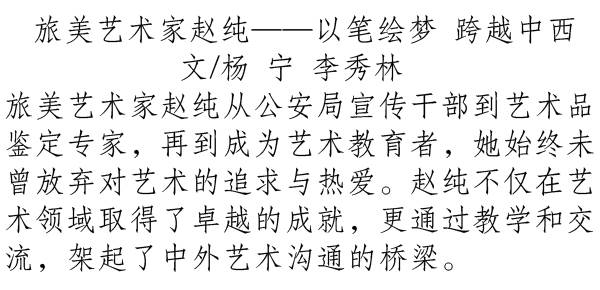 旅美艺术家赵纯——以笔绘梦 跨越中西
文/杨 宁 李秀林
旅美艺术家赵纯从公安局宣传干部到艺术品
鉴定专家，再到成为艺术教育者，她始终未
曾放弃对艺术的追求与热爱。赵纯不仅在艺
术领域取得了卓越的成就，更通过教学和交
流，架起了中外艺术沟通的桥梁。